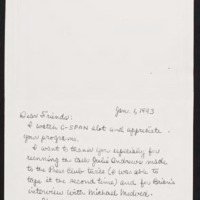 Jan. 1, 1993
Dear Friends:
I watch C-SPAN alot and appreciate
your programs.
I want to thank you especially for
rerunning the talk Julie Andrews made
to the Press Club twice (I was able to
tape it the second time) and for Brian's
interview with Michael Medved.